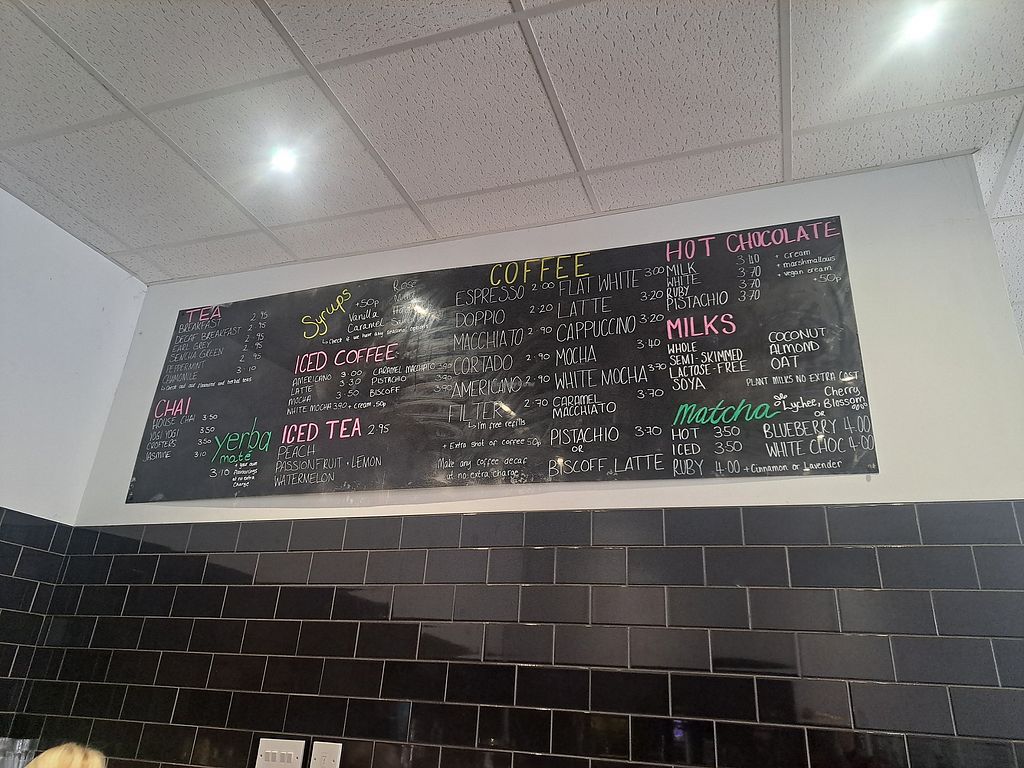 TEA
BREAKFAST 2.95
DECAF BREAKFAST 2.95
EARL GREY 2.95
SENCHA GREEN 2.95
PEPPERMINT 2.95
CHAMOMILE 3.10
Check out our flavoured and herbal teas
CHAI
HOUSE CHAI 3.50
YOGI YOGI 3.50
3.50
JASMINE 3.10
yerba
mate
3.10
+ your own
flavourings
at no extra
charge
Syrups
+50p
Vanilla
Caramel
Rose
Check if we have any seasonal
ICED COFFEE
AMERICANO 3.00
LATTE 3.30
MOCHA 3.50
WHITE MOCHA 3.90 + cream .50p
CARAMEL MACCHIATO 3.90
PISTACHIO 3.90
BISCOFF 3.90
ICED TEA 2.95
PEACH
PASSIONFRUIT + LEMON
WATERMELON
COFFEE
ESPRESSO 2.00
DOPPIO 2.20
MACCHIATO 2.90
CORTADO 2.90
AMERICANO 2.90
FILTER 2.70
1m free refills
+ Extra shot of coffee 50p
Make any coffee decaf
at no extra charge
FLAT WHITE 3.00
LATTE 3.20
CAPPUCCINO 3.20
MOCHA 3.40
WHITE MOCHA 3.90
CARAMEL 3.70
MACCHIATO
PISTACHIO 3.70
OR
BISCOFF LATTE
HOT CHOCOLATE
MILK 3.40
WHITE 3.70
RUBY 3.70
PISTACHIO 3.70
+ cream
+ marshmallows
+ vegan cream
+50p
MILKS
WHOLE
SEMI SKIMMED
LACTOSE-FREE
SOYA
COCONUT
ALMOND
OAT
PLANT MILKS NO EXTRA COST
Matcha
HOT 3.50
ICED 3.50
RUBY 4.00
Lychee, Cherry
Blossom
OR
BLUEBERRY 4.00
WHITE CHOC 4.00
+ Cinnamon or Lavender